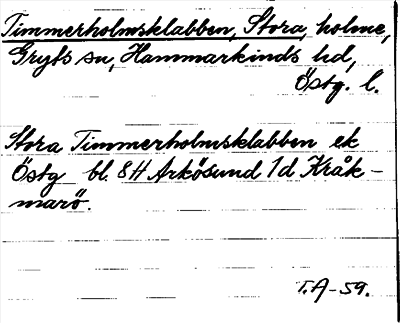 Timmerholmsklabben, Stora, holme,
Gryts sn, Hammarkinds hd,
Östg. l.
Stora Timmerholmsklabben ek
Östg bl. 8H Arkösund 1d Kråk-
marö.
T.A-59.